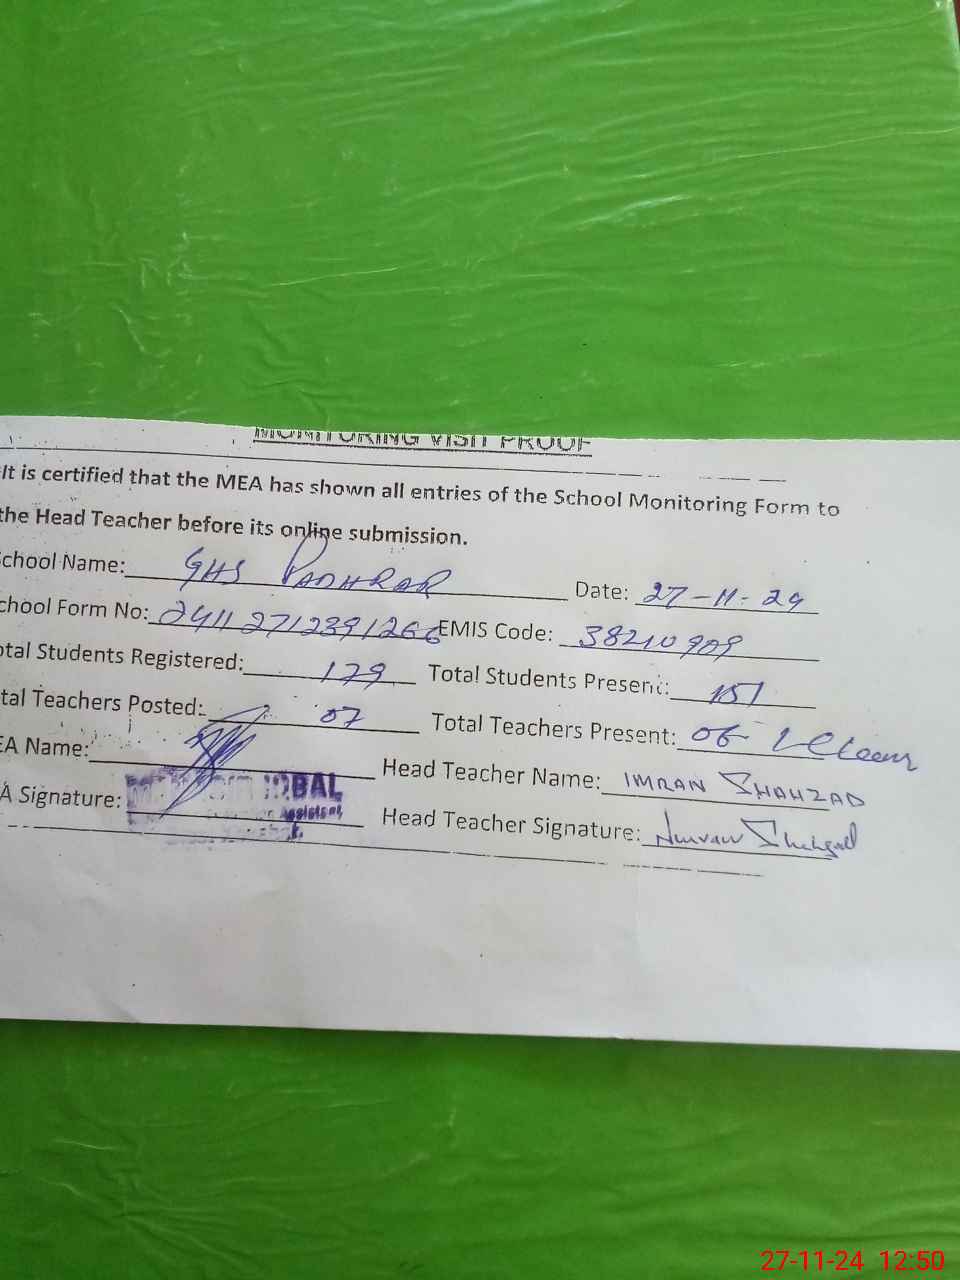 MONITORING VISIT PROOF
It is certified that the MEA has shown all entries of the School Monitoring Form to
the Head Teacher before its online submission.
chool Name: GHS PADHRAR Date: 27-11-24
chool Form No: 2411 2712391266 EMIS Code: 38210909
otal Students Registered: 179 Total Students Present: 151
tal Teachers Posted: 07 Total Teachers Present: 06
EA Name: Head Teacher Name: IMRAN SHAHZAD
A Signature: IQBAL Assistant Head Teacher Signature: Imran Shahzad
27-11-24 12:50